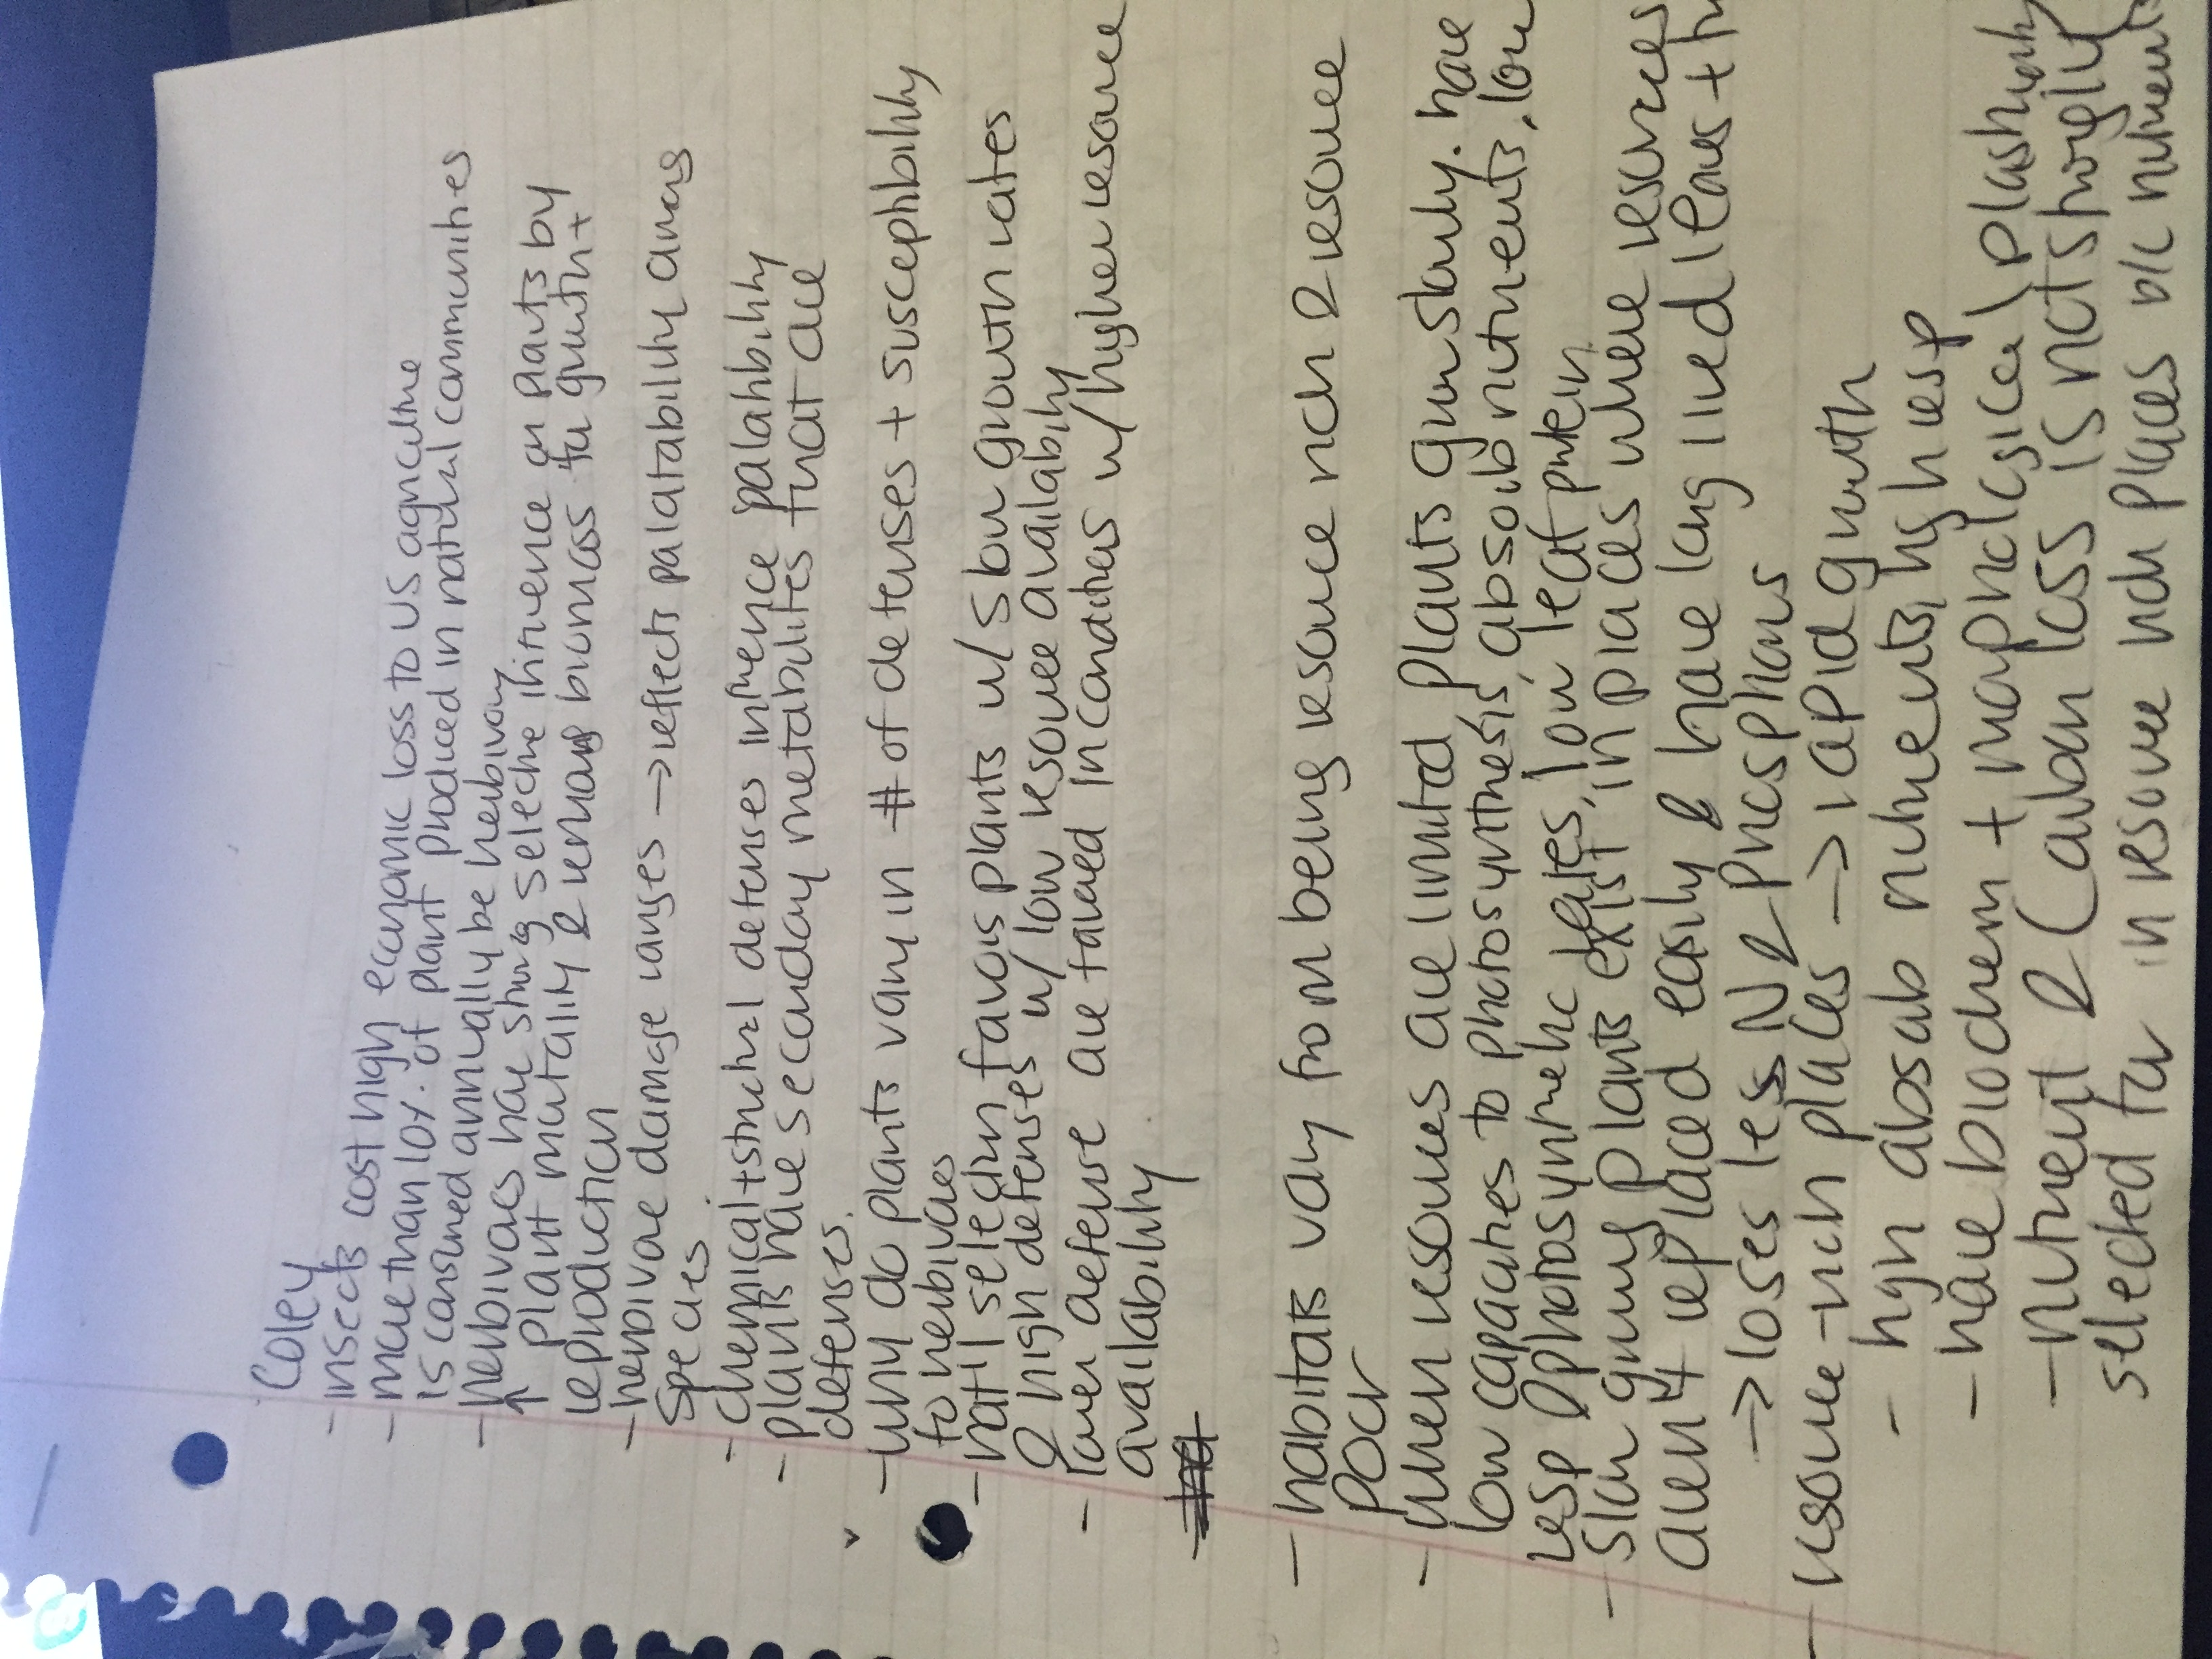 Coley
- insects cost high economic loss to US agriculture
- more than 10% of plant produced in natural communities
is consumed annually be herbivory
- herbivores have strong selective influence on plants by
↑ plant mortality & remove biomass for growth +
reproduction
- herbivore damage ranges → reflects palatability among
species
- chemical + structural defenses influence palatability
- plants have secondary metabolites that are
defenses.
- why do plants vary in # of defenses + susceptibility
to herbivores
- nat'l selection favors plants w/ slow growth rates
& high defenses w/ low resource availability
- lower defense are favored in conditions w/ higher resource
availability
- habitats vary from being resource rich & resource
poor
- when resources are limited plants grow slowly. have
low capacities to photosynthesis, absorb nutrients, low
resp & photosynthetic rates, low leaf protein
- slow growing plants exist in places where resources
aren't replaced easily & have long lived leaves +
→ loses less N & Phosphorus
- resource-rich places → rapid growth
- high absorb nutrients, high resp
- have biochem + morphological plasticity
- nutrient & carbon loss is not strongly
selected for in resource rich places b/c nutrients